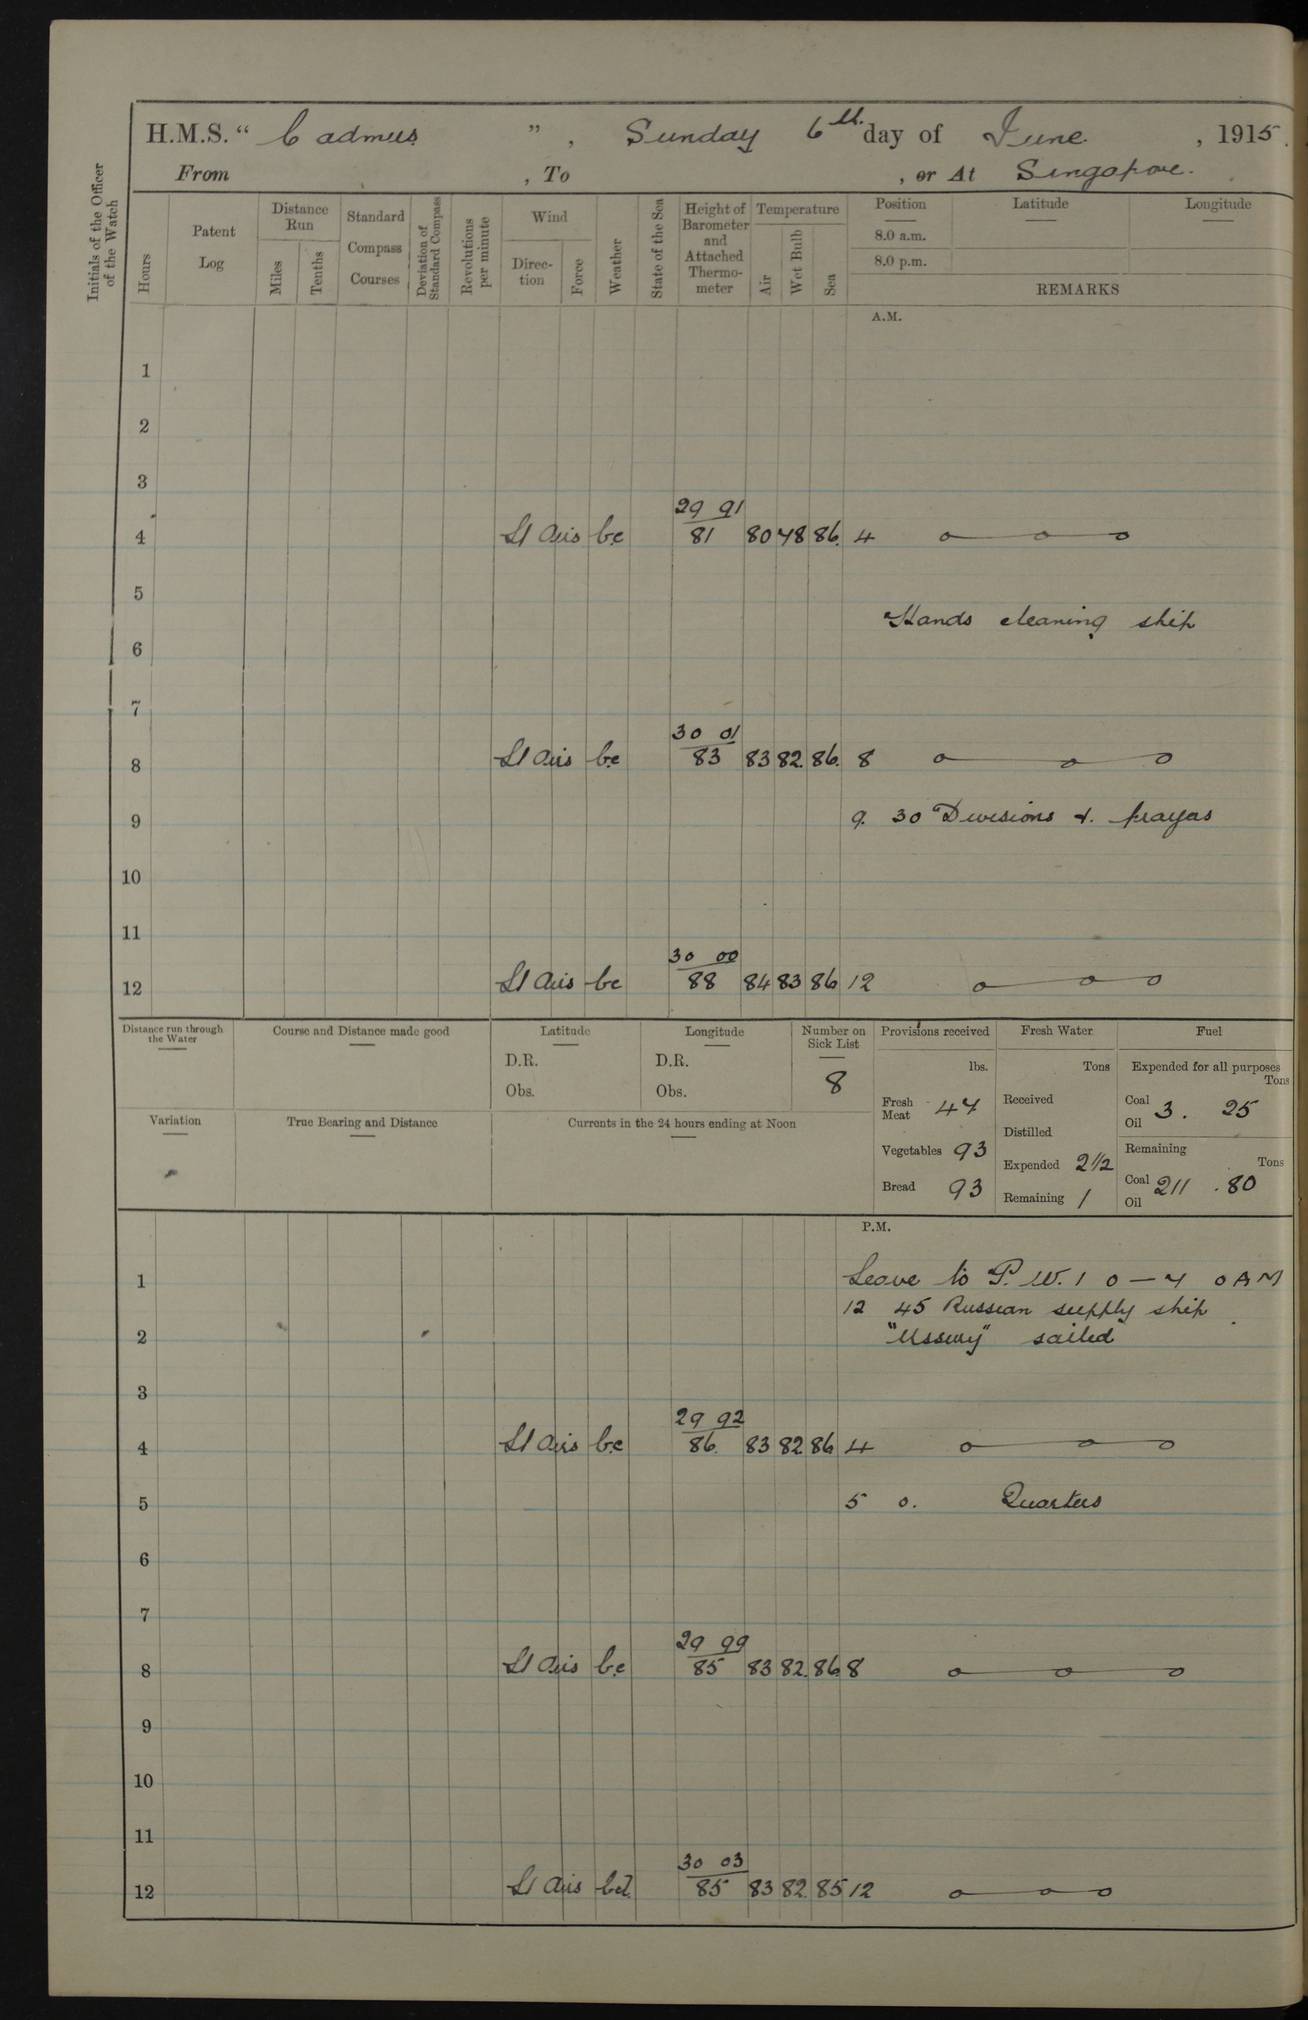 H.M.S. "Cadmus", Sunday 6th day of June, 1915.
From , To , or At Singapore.
Initials of the Officer of the Watch
Hours
Patent Log
Distance Run
Miles
Tenths
Standard Compass Courses
Deviation of Standard Compass
Revolutions per minute
Wind
Direction
Force
Weather
State of the Sea
Height of Barometer and Attached Thermo-meter
Temperature
Air
Wet Bulb
Sea
Position
8.0 a.m.
8.0 p.m.
Latitude
Longitude
REMARKS
A.M.
1
2
3
29 91
4 Lt Airs b.c 81 80 78 86 4
5
Hands cleaning ship
6
7
30 01
8 Lt Airs b.c 83 83 82 86 8
9 9. 30 Divisions &. prayers
10
11
30 00
12 Lt Airs bc 88 84 83 86 12
Distance run through the Water
Course and Distance made good
Latitude
D.R.
Obs.
Longitude
D.R.
Obs.
Number on Sick List
8
Variation
True Bearing and Distance
Currents in the 24 hours ending at Noon
Provisions received
lbs.
Fresh Meat 47
Vegetables 93
Bread 93
Fresh Water
Tons
Received
Distilled
Expended 2 1/2
Remaining 1
Fuel
Expended for all purposes
Tons
Coal 3. 25
Oil
Remaining
Tons
Coal 211 .80
Oil
P.M.
1 Leave to P. W. 1 0 — 7 0 AM
12 45 Russian supply ship
2 "Ussury" sailed
3
29 92
4 Lt Airs b.c 86 83 82 86 4
5 5 0. Quarters
6
7
29 99
8 Lt Airs b.c 85 83 82 86 8
9
10
11
30 03
12 Lt Airs bcl. 85 83 82 85 12